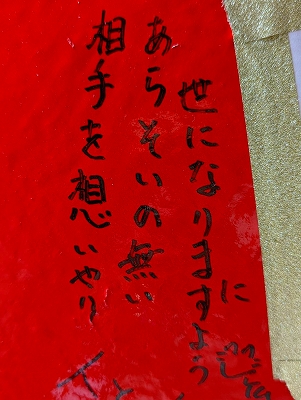 相手を想いやり
あらそいの無い
世になりますように